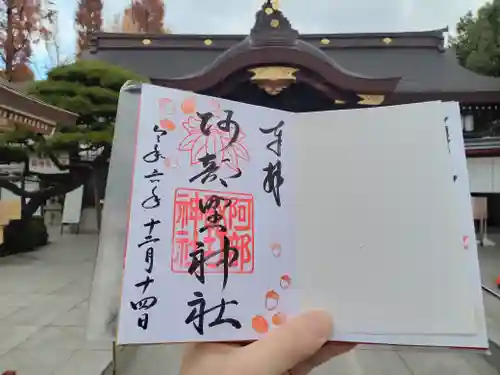 奉拝
阿部野神社
阿部野神社
令和六年十二月十四日